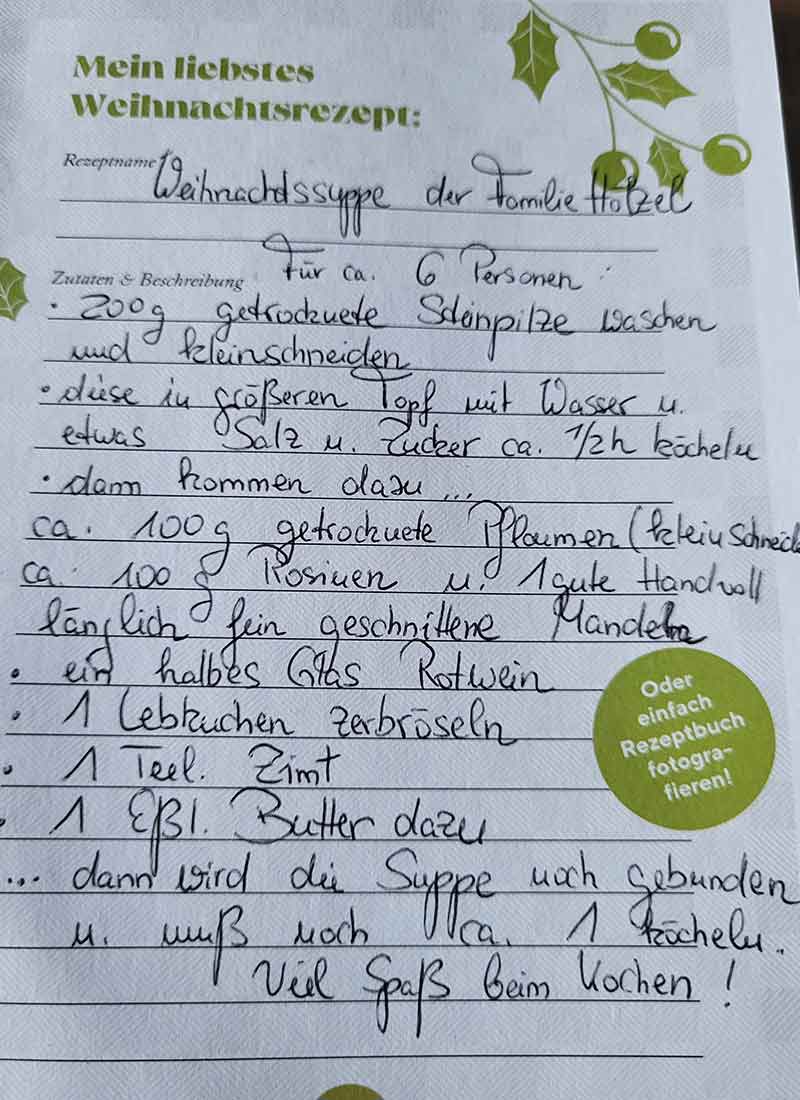 Mein liebstes
Weihnachtsrezept:
Rezeptname
Weihnachtssuppe der Familie Hötzel
Zutaten & Beschreibung Für ca. 6 Personen:
• 200g getrocknete Steinpilze waschen
und kleinschneiden
• diese in größeren Topf mit Wasser u.
etwas Salz u. Zucker ca. 1/2h köcheln
• dann kommen dazu ...
ca. 100g getrocknete Pflaumen (klein
ca. 100g Rosinen u. 1 gute Handvoll
länglich fein geschnittene Mandeln
• ein halbes Glas Rotwein
• 1 Lebkuchen zerbröseln
• 1 Teel. Zimt
• 1 Eßl. Butter dazu
... dann wird die Suppe noch gebunden
u. muß noch ca. 1 köcheln.
Viel Spaß beim Kochen!
Oder
einfach
Rezeptbuch
fotogra-
fieren!